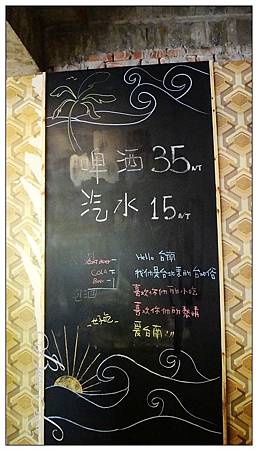 啤酒 35 NT
汽水 15 NT
Hello 台南
我們是台北來的台北俗
喜歡你們的小吃
喜歡你們的熱情
愛台南!!
ROOT BEER
COLA
啤酒